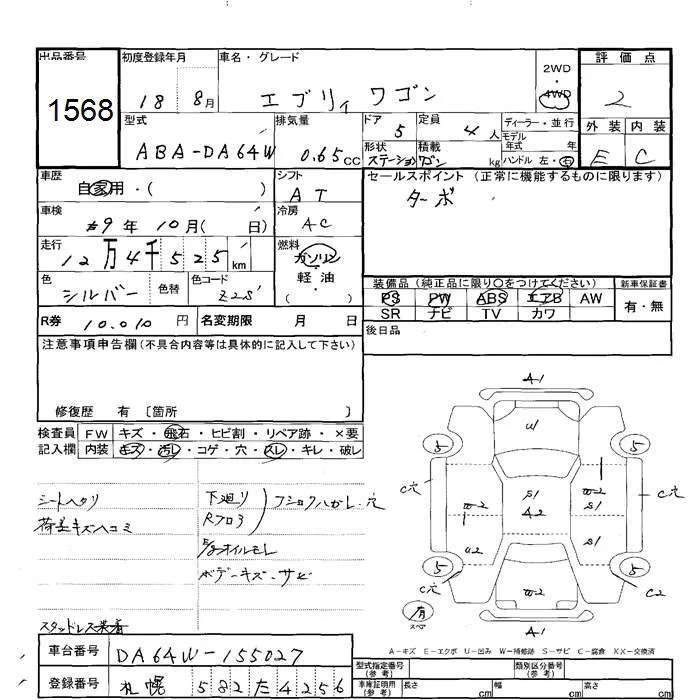 出品番号
1568
初度登録年月
18 8月
車名・グレード
エブリィ ワゴン
2WD・4WD
評価点
2
型式
ABA-DA64W
排気量
0.65cc
ドア
5
定員
4人
ディーラー・並行
モデル年式 年
形状
ステーションワゴン
積載
kg
ハンドル 左・右
外装 内装
E C
車歴
自家用・( )
シフト
AT
セールスポイント (正常に機能するものに限ります)
ターボ
車検
年 10月( 日)
冷房
AC
走行
12万4千525km
燃料
ガソリン
軽・油
( )
色
シルバー
色替
色コード
Z2S
装備品(純正品に限り○をつけてください)
PS PW ABS エアB AW
SR ナビ TV カワ
新車保証書
有・無
R券 10,010円
名変期限 月 日
後日品
注意事項申告欄(不具合内容等は具体的に記入して下さい)
修復歴 有 〔箇所 〕
検査員記入欄
FW キズ・飛石・ヒビ割・リペア跡・×要
内装 キズ・汚レ・コゲ・穴・スレ・キレ・破レ
シートヘタリ
荷室キズヘコミ
下廻り
Rフロア
オイルモレ
ボデーキズ・サビ
スタッドレス装着
A1
U1
5 5
C穴 C穴
W2 S1 W2
A2 S1
U2 S1
5 5
C穴 W2 C2
有
スペア
A1
A-キズ E-エクボ U-凹み W-補修跡 S-サビ C-腐食 XX-交換済
車台番号
DA64W-155027
登録番号
札幌 582 た 4256
型式指定番号(参考)
類別区分番号(参考)
車庫証明用(参考)
長さ cm 幅 cm 高さ cm